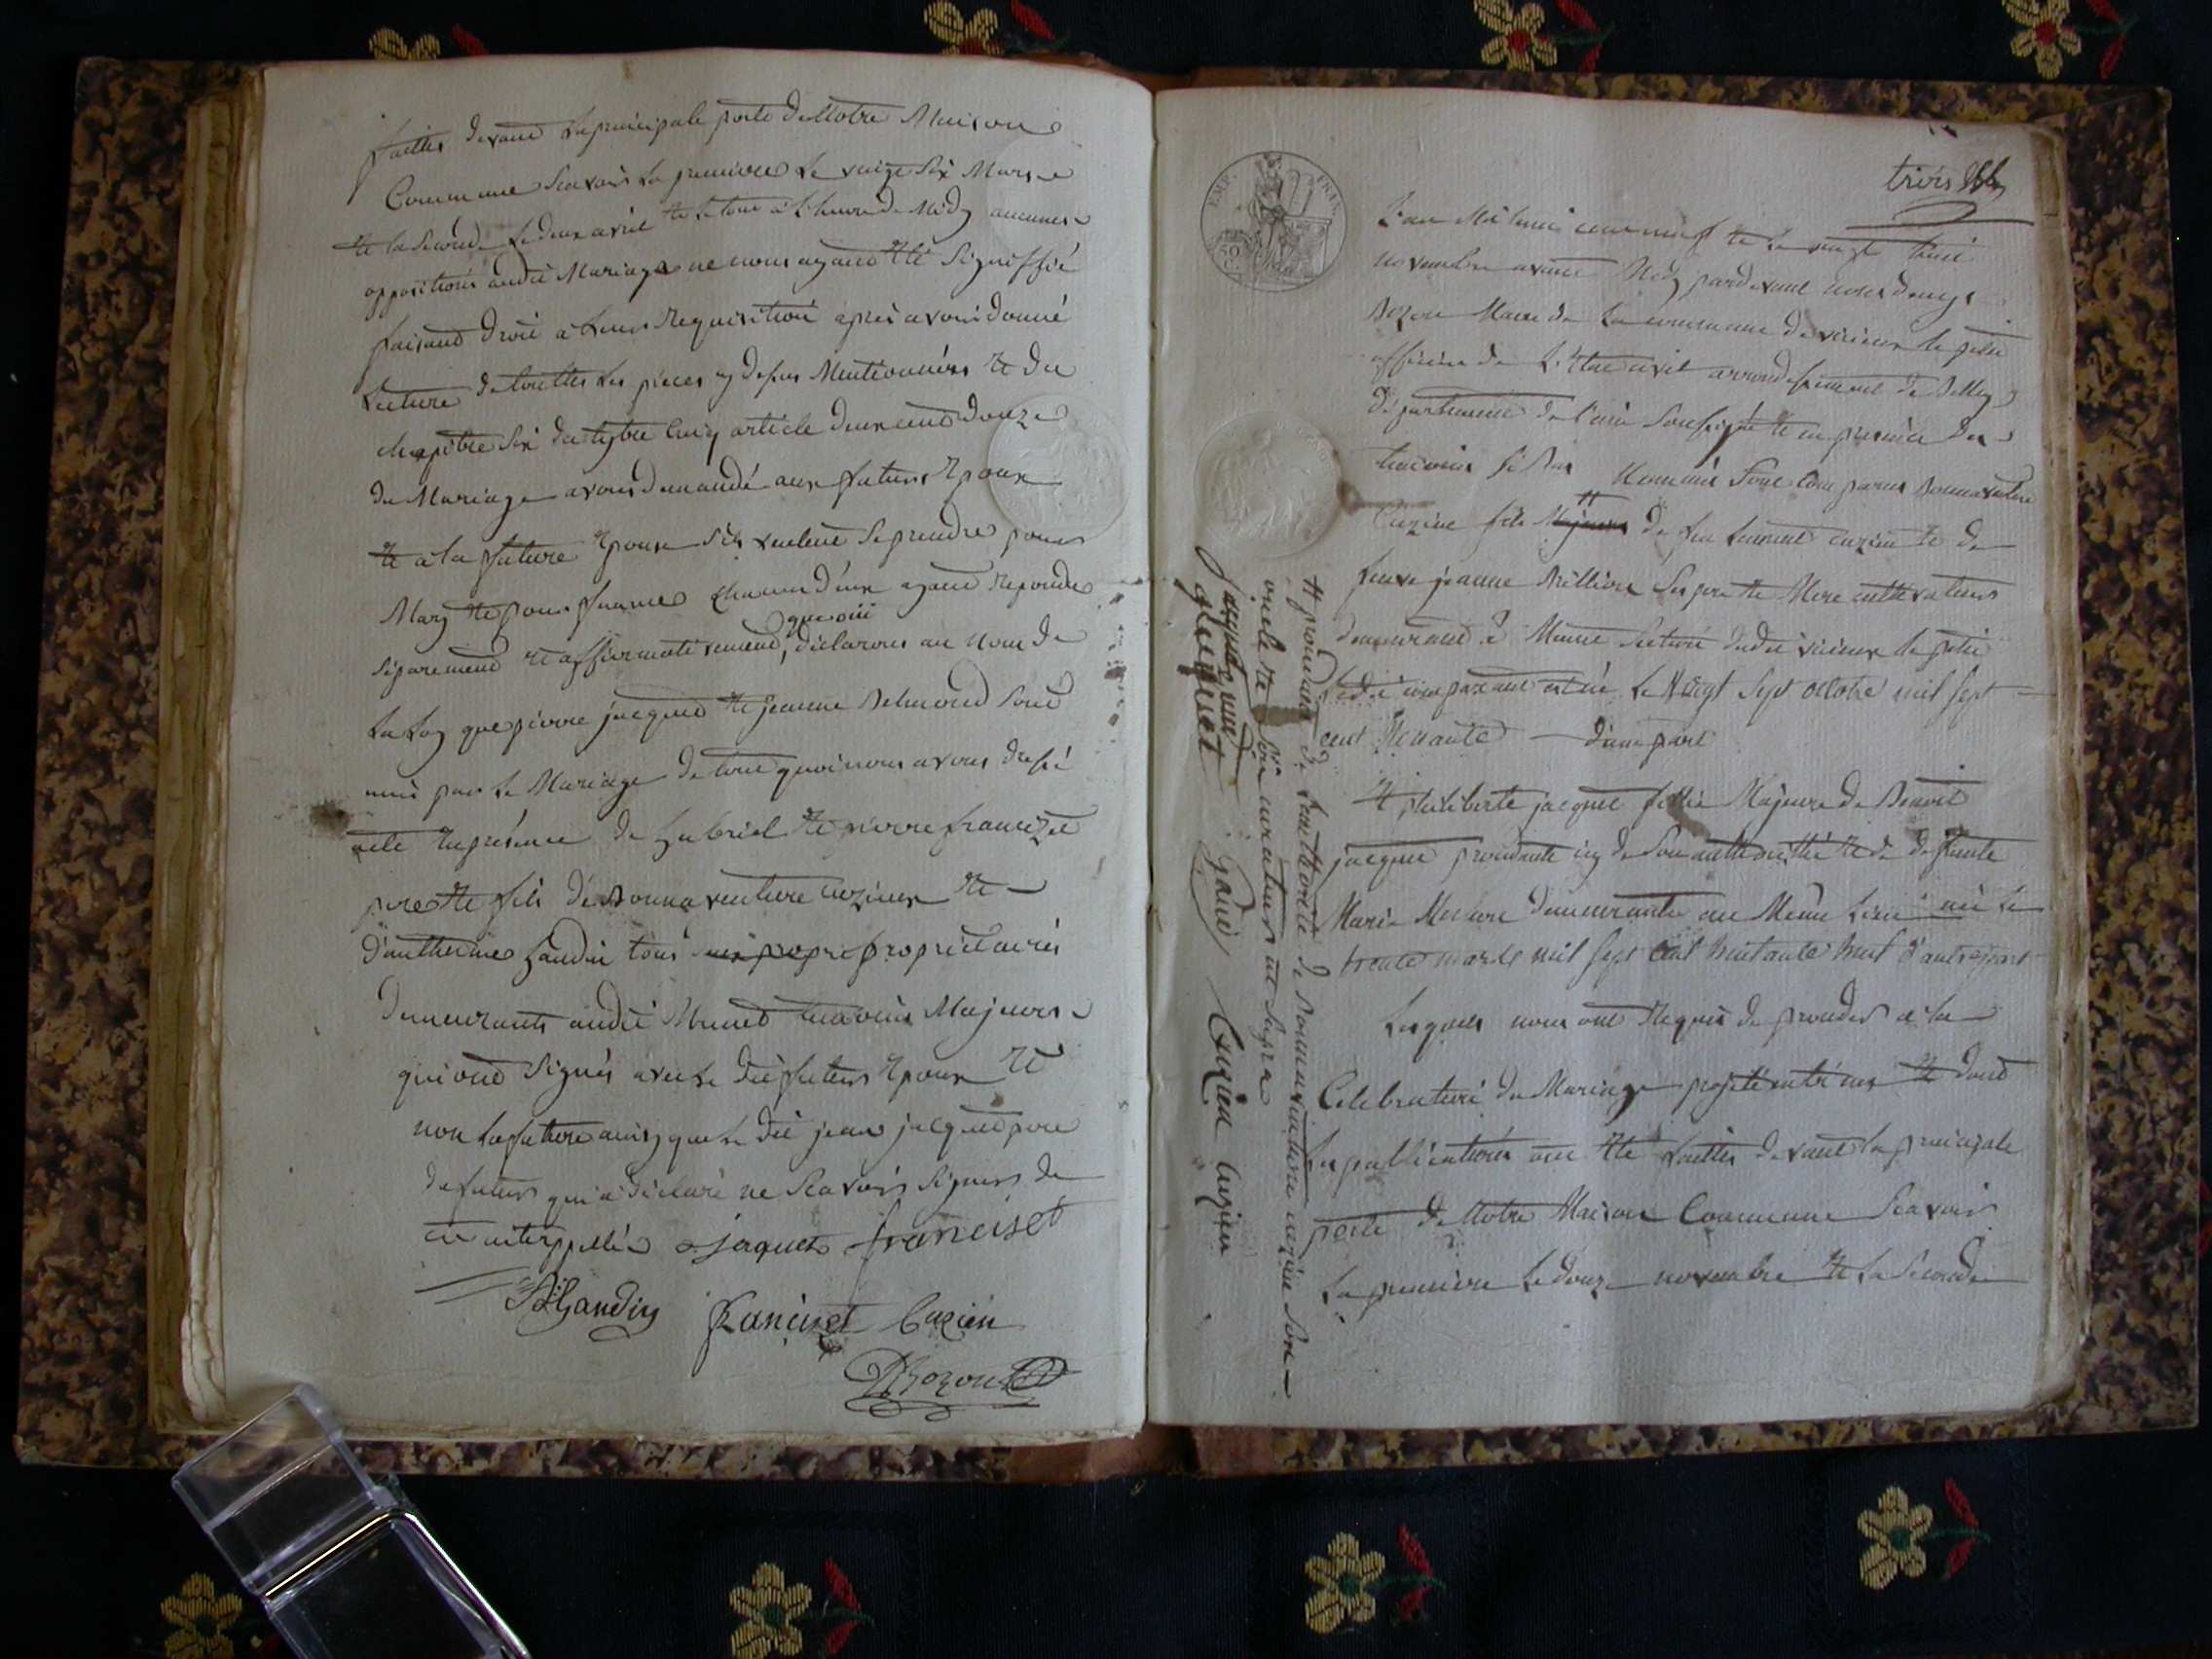 faittes devant la principale porte de Notre Maison
Commune Scavoir la premiere le vingt Six Mars
et la Seconde le deux avril et le tout à l'heure de Midy aucune
opposition audit Mariage ne nous ayant été Signiffié
faisant droit à leurs requisition après avoir donné
Lecture de touttes les pieces cy dessus Mentionnées et du
chapitre Six du tytre Cinq article deux cent douze
du Mariage avons demandé aux futurs Epoux
et a la future Epouse S'ils veulent Se prendre pour
Mary et pour femme chacun d'eux ayant repondu
que oui
Séparement et affirmativement, déclarons au Nom de
La Loy que pierre jacquet et jeanne Belmond Sont
unis par le Mariage de tout quoi nous avons dressé
acte En présence de Gabriel et pierre francizet
pere et fils de Bonnaventure cuzieux et
D'antherme Gandin tous propriétaires
Demeurants audit Munet temoins Majeurs
qui ont Signés avec le dit futurs Epoux et
non la future ainsy que le dit jean jacquet pere
du futurs qui a déclaré ne Scavoir Signers de
ce interppellés jaquet franciset
Gandin francizet Cuzien
DBozon
trois
EMP. FRAN.
50
L'an Mil huit cent neuf et le vingt
novembre avant Midy pardevant nous
Bozon Maire de la commune de virieux le petit
officier de L'Etat civil arrondissement de Belley
département de l'ain Soussigné et en présence des
temoins Si Bas Nommés Sont Comparus Bonnaventure
Cuzieu fils Majeurs de feu Laurent cuzieu et de
feue jeanne Million Ses pere et Mere cultivateurs
demeurant à Munet Section dudit virieux le petit
Ledit comparant est né Le Vingt Sept octobre mil Sept
cent Nonante d'une part
Et philiberte jacquet fillie Majeure de Benoit
jacquet procédante icy de Son authorithé et de deffunte
Marie demeurante au Même Lieu née le
trente mars mil Sept cent huitante huit d'autre part
Lesquels nous ont Requis de proceder a la
Celebration du Mariage projeté entr'eux et dont
Les publications ont été faittes devant la principale
porte de Notre Maison Commune Scavoir
La premiere Le douze novembre et la Seconde
procédant de l'authorité de Bonnaventure cuzieu Son
oncle et Son curateur ut Supra
jacquet Gandin Cuzieu Cuzieu